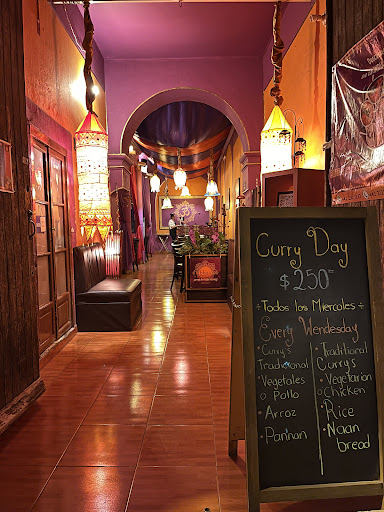 Curry Day
$250
Todos los Miercoles
Every Wendesday
• Curry's
Tradicional
Vegetales
o Pollo
• Arroz
• Pannan
• Traditional
Curry's
• Vegetarian
○ Chicken
• Rice
• Naan
bread